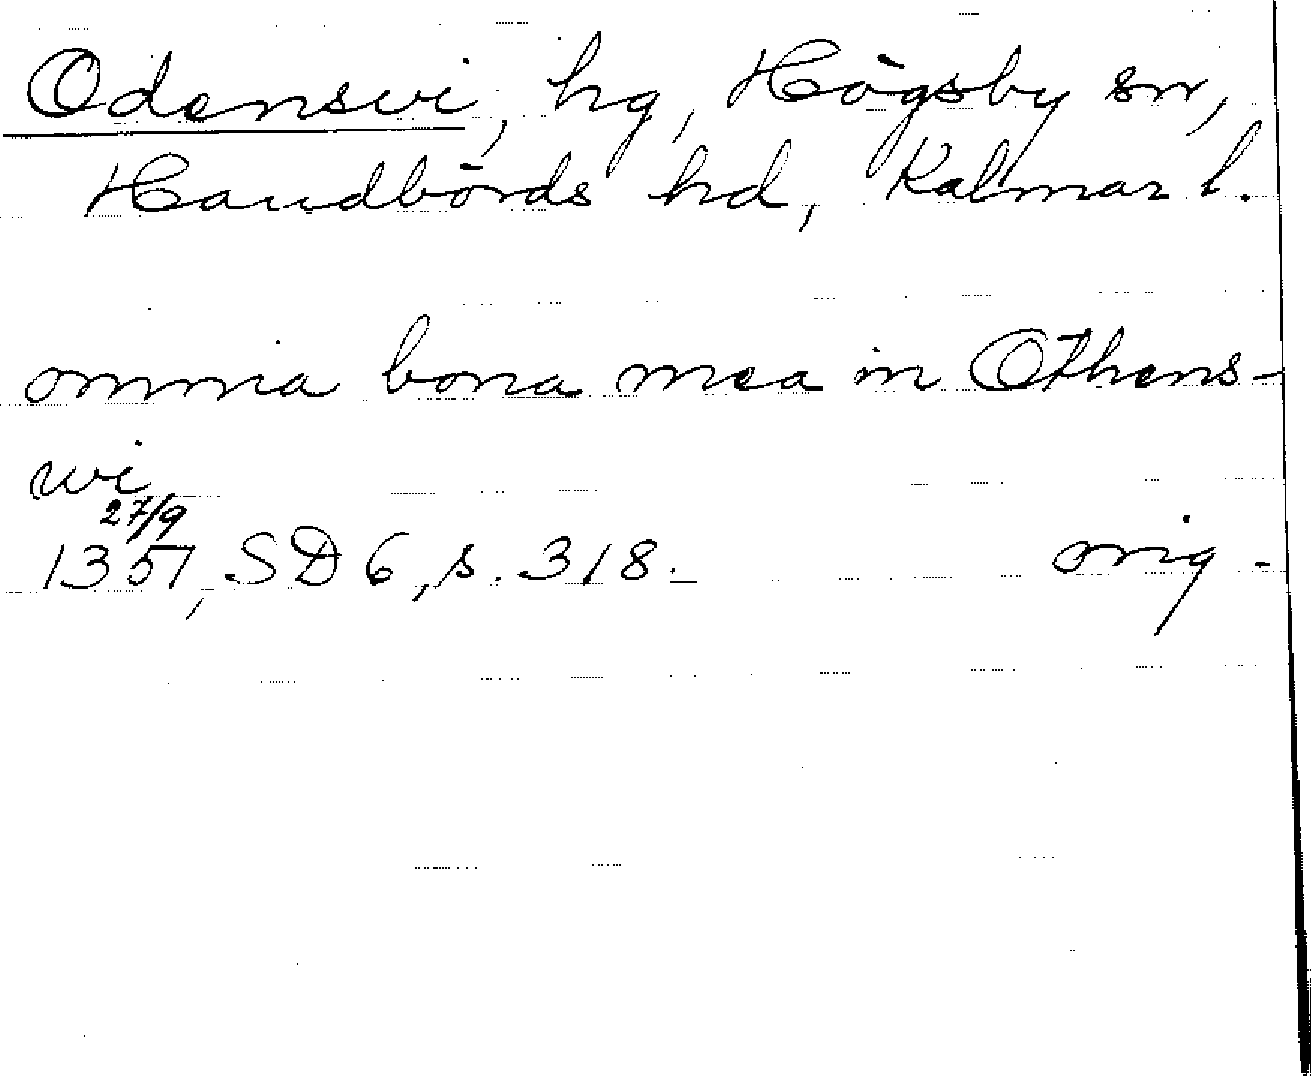 Odensvi, hg, Högsby sn,
Handbörds hd, Kalmar l.
omnia bona mea in Othens-
wi
27/9
1351, SD 6, s. 318.
orig.